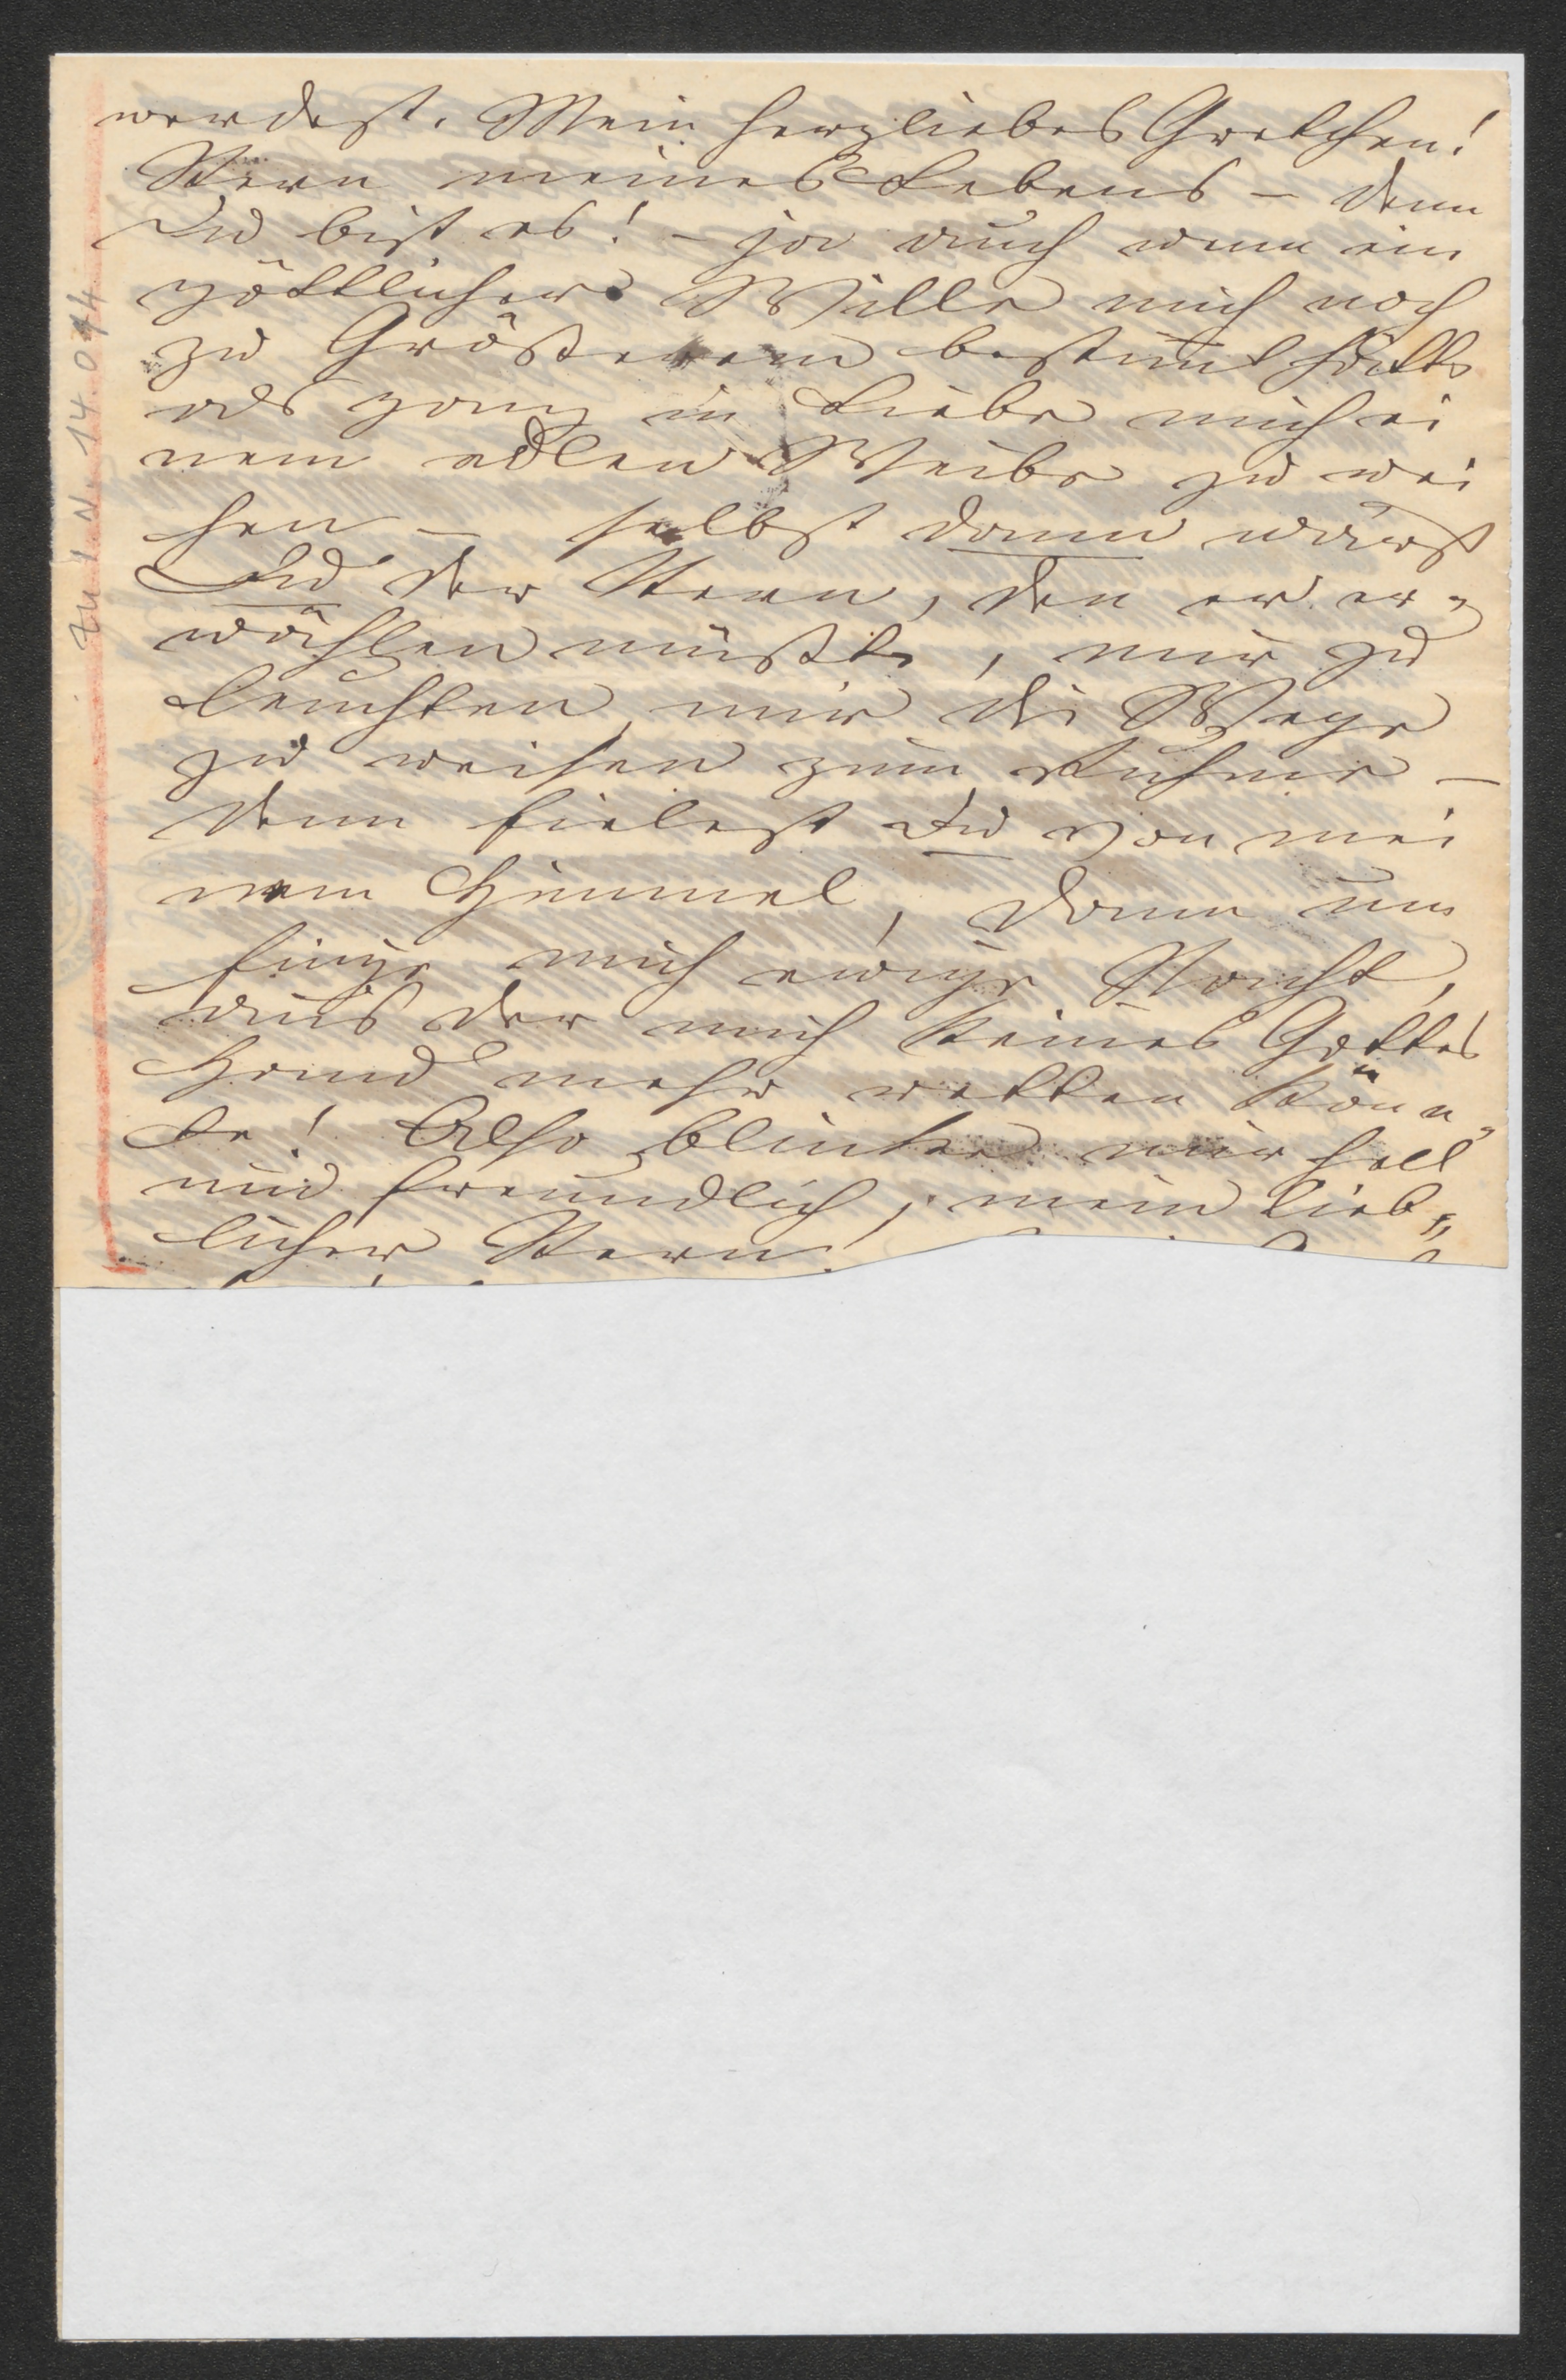 werdest. Mein herzliebes Gretchen!
Stern meines Lebens – denn
Du bist es! – ja auch wenn ein
göttlicher Wille mich noch
zu Größerem bestimt hätte
als ganz in Liebe mich ei
nem edlen Weibe zu wei
hen – selbst dann wärst
Du der Stern, den er er-
wählen müßte, mir zu
leuchten, mir die Wege
zu weisen zum Ruhme –
denn fielest Du von mei
nem Himmel, dann um
finge mich ewige Nacht,
aus der mich keines Gottes
Hand mehr retten könn-
te! Also blinke mir hell
und freundlich, mein lieb-
licher Stern!
Zu I.N. 14.044